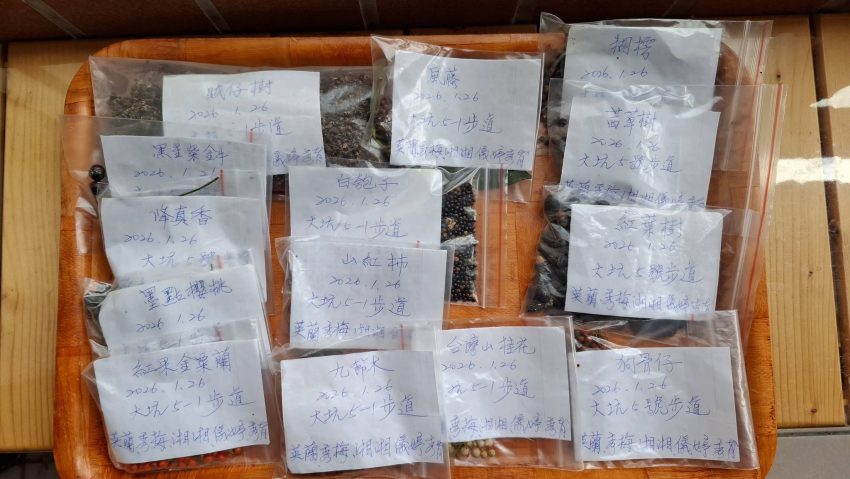 賊仔樹
2026.1.26
5-1步道
風藤
2026.1.26
大坑5-1步道
英蘭秀梅湘湘儀婷
糊樗
2026.1.26
茵草樹
2026.1.26
大坑5號步道
黑星紫金牛
2026.1.21
白匏子
2026.1.26
大坑5-1步道
降真香
2026.1.26
大坑5號
紅葉樹
2026.1.26
大坑5號步道
英蘭秀梅湘湘儀婷
山紅柿
2026.1.26
大坑5-1步道
英蘭秀梅
墨點櫻桃
2026.1.26
紅果金粟蘭
2026.1.26
大坑5-1步道
英蘭秀梅湘湘儀婷秀育
九節木
2026.1.26
大坑5-1步道
英蘭秀梅湘湘儀婷秀育
台灣山桂花
2026.1.26
坑5-1步道
秀梅湘湘儀婷秀育
狗骨仔
2026.1.26
大坑5號步道
英蘭秀梅湘湘儀婷秀育